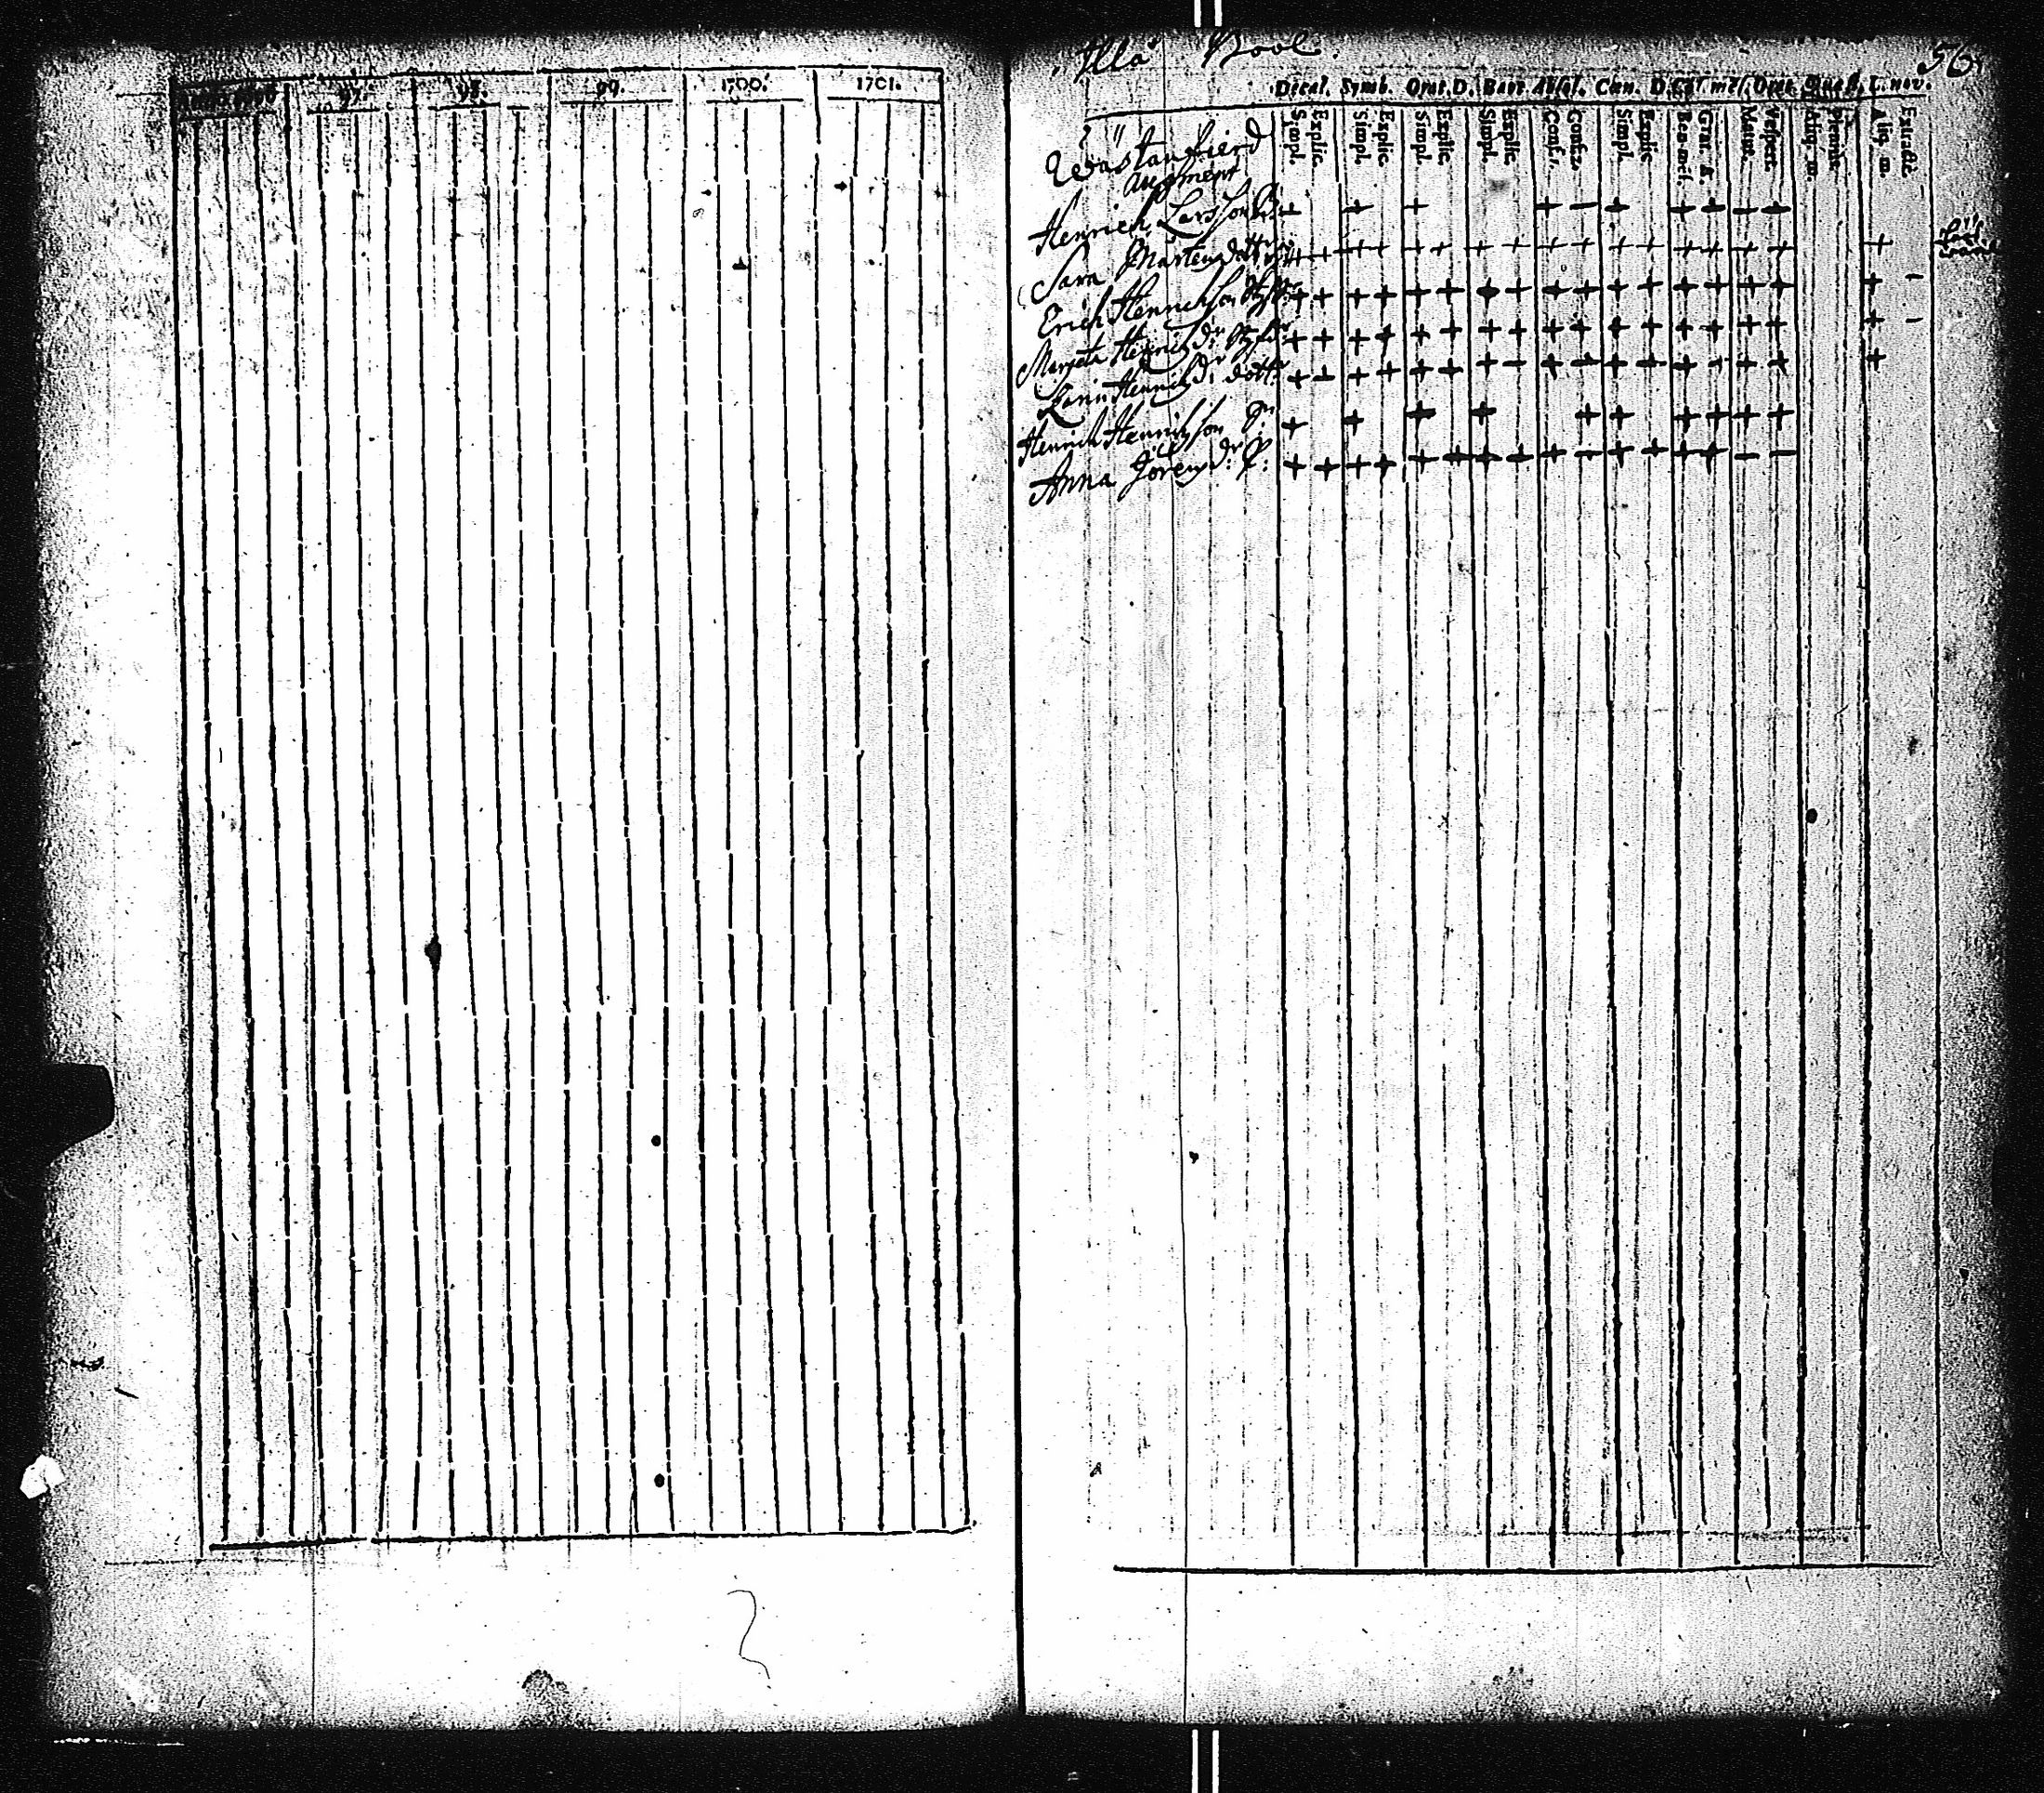 97. 98. 99. 1700. 1701.
Illa Bool. 56
Decal. Symb. Orat. D. Bapt. Absol. Cœn. D. Orat. Quæst. L. nov.
Simpl. Explic. Simpl. Explic. Simpl. Explic. Simpl. Explic. Conf. 1. Conf. 2. Simpl. Explic. Ben. mēs. Grat. Matut. Vespert. Aliq. m. Plenius. Aliq. m. Exactè.
Wästanfierd
augment
Henrich Larsson + + + + – + + + – +
Sara Mårtensdotter + + + + + + + + + + + + + + + +
Erich Henrichson + + + + + + + + + + + + + + + + + –
Margeta Henrichsdr + + + + + + + + + + + + + + + + + –
Karin Henrichsdr dotter + + + + + + + – + + + + + + + + +
Henrich Henrichson + + + + + + + + + +
Anna Jörensdr + + + + + + + + + + + + + + – –